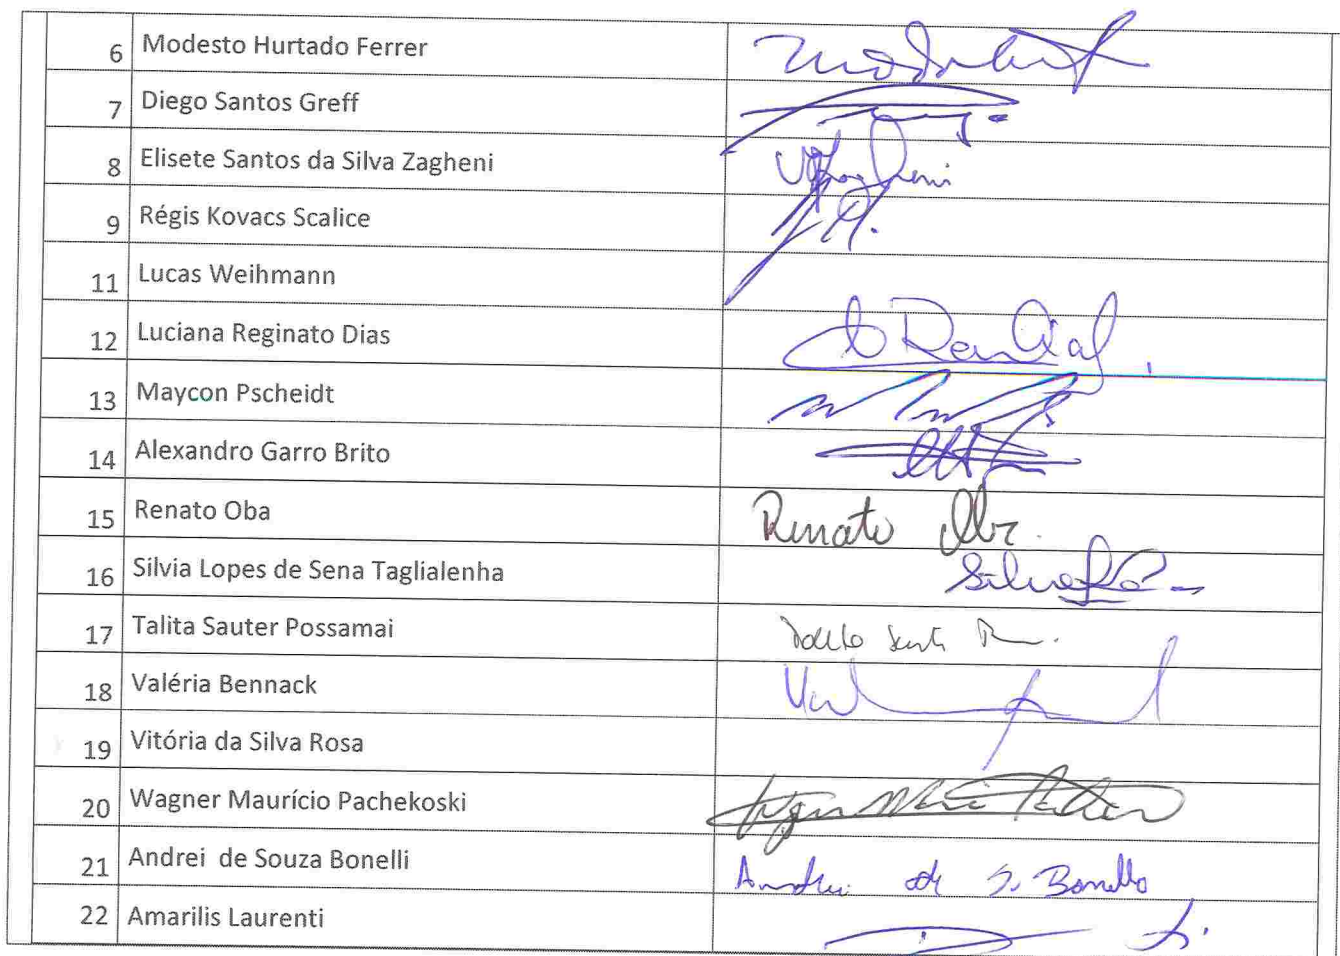 6 Modesto Hurtado Ferrer
7 Diego Santos Greff
8 Elisete Santos da Silva Zagheni
9 Régis Kovacs Scalice
11 Lucas Weihmann
12 Luciana Reginato Dias
13 Maycon Pscheidt
14 Alexandro Garro Brito
15 Renato Oba Renato Oba
16 Silvia Lopes de Sena Taglialenha
17 Talita Sauter Possamai
18 Valéria Bennack
19 Vitória da Silva Rosa
20 Wagner Maurício Pachekoski
21 Andrei de Souza Bonelli Andrei de S. Bonelli
22 Amarilis Laurenti